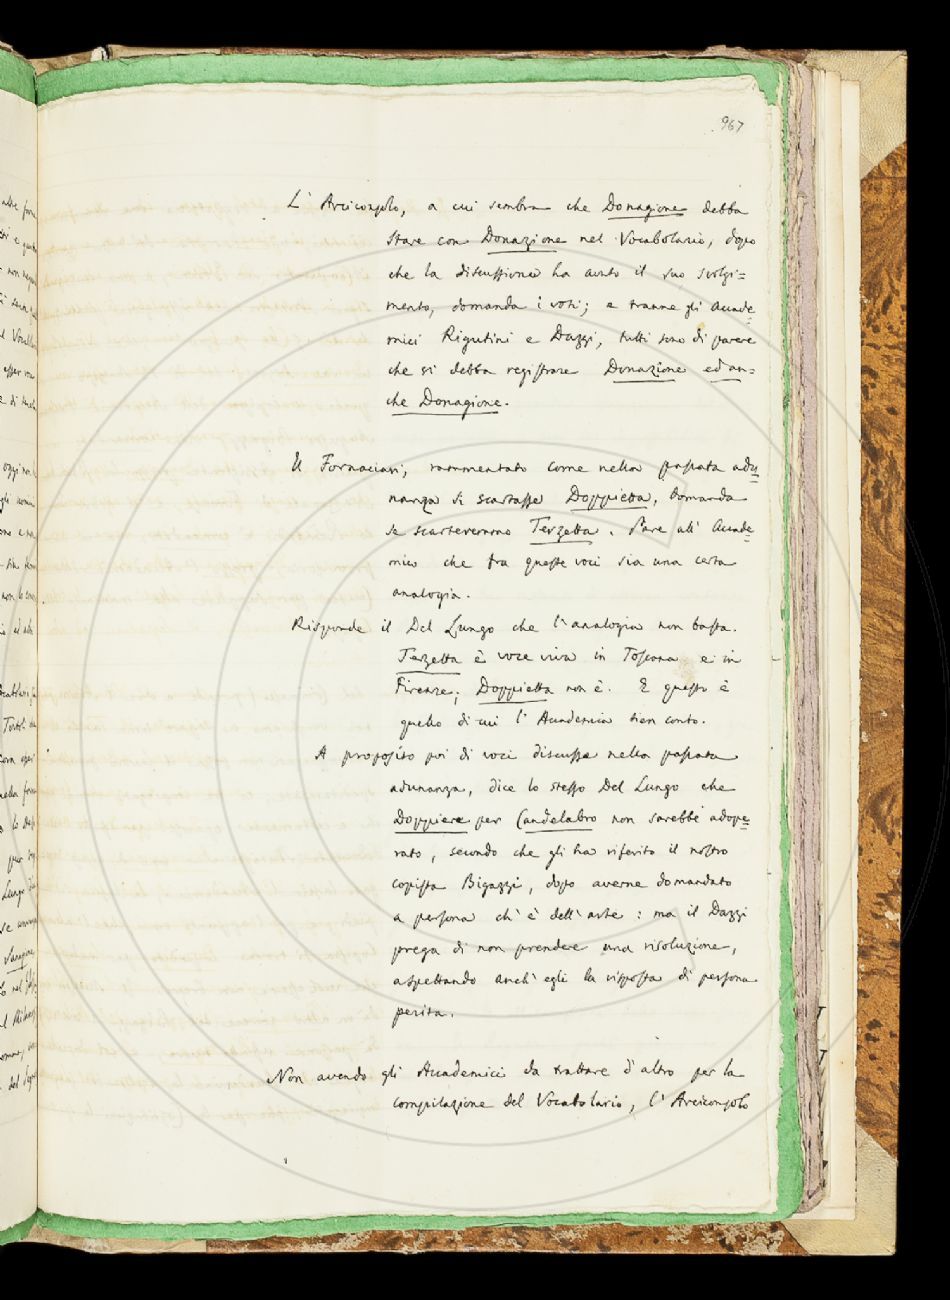 967
L'Arciconsolo, a cui sembra che Donagione debba
stare con Donazione nel Vocabolario, dopo
che la discussione ha avuto il suo svolgi=
mento, domanda i voti; e tranne gli Accade=
mici Rigutini e Dazzi, tutti sono di parere
che si debba registrare Donazione ed an=
che Donagione.
Il Fornaciari, rammentato come nella passata adu=
nanza si scartasse Doppietta, domanda
se scarteremmo Terzetta. Pare all'Accade=
mico che tra queste voci sia una certa
analogia.
Risponde il Del Lungo che l'analogia non basta.
Terzetta è voce viva in Toscana e in
Firenze; Doppietta non è. E questo è
quello di cui l'Accademia tien conto.
A proposito poi di voci discusse nella passata
adunanza, dice lo stesso Del Lungo che
Doppiere per Candelabro non sarebbe adope=
rato, secondo che gli ha riferito il nostro
copista Bigazzi, dopo averne domandato
a persona ch'è dell'arte: ma il Dazzi
prega di non prendere una risoluzione,
aspettando anch'egli la risposta di persona
perita.
Non avendo gli Accademici da trattare d'altro per la
compilazione del Vocabolario, l'Arciconsolo